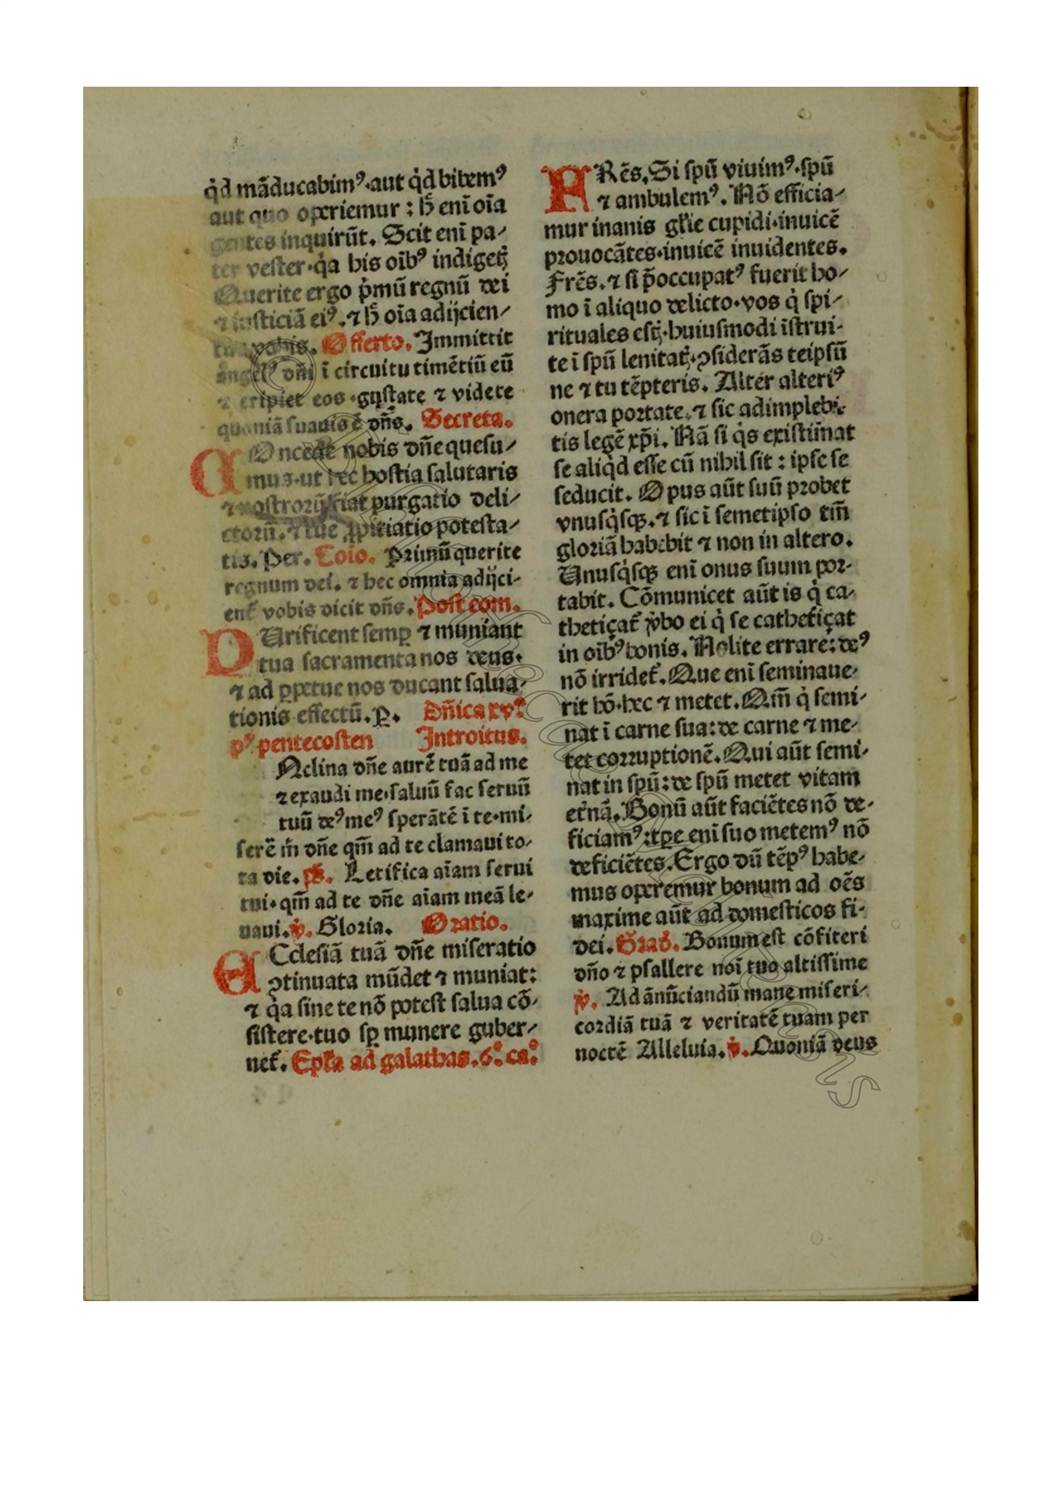 q̇d mãducabimꝰ·aut q̇d bibemꝰ
aut quo operiemur : h̄ eni oĩa
gentes inquirũt. Scit eni pa⸗
ter vester·q̇a his oĩbꝰ indigetꝭ
Querite ergo p̃mũ regnũ dei
⁊ iusticiã eiꝰ.⁊ h̄ oĩa adijcien⸗
tur vobis. Offerto. Immittit
ãngelꝰ dñi ĩ circuitu timẽtiũ eũ
⁊ eripiet eos·gustate ⁊ videte
quoniã suauis ẽ dñs. Secreta.
COncede nobis dñe quesu⸗
mus·ut hec hostia salutaris
⁊ nostrorũ fiat purgatio deli⸗
ctorũ.⁊ tue ꝓpitiatio potesta⸗
tis. Per. Coĩo. Primũ querite
regnum dei. ⁊ hec omnia adijci⸗
ent̃ vobis dicit dñs. Post com.
PUrificent semꝑ ⁊ muniant
tua sacramenta nos deus·
⁊ ad ꝑpetue nos ducant salua⸗
tionis effectũ. ꝑ. Dñica xvᵃ
pꝰ pentecosten Introitus.
INclina dñe aurẽ tuã ad me
⁊ exaudi me·saluũ fac seruũ
tuũ deꝰ meꝰ sperãtẽ ĩ te·mi⸗
serẽ m̃ dñe qm̃ ad te clamaui to⸗
ta die. p̃s. Letifica aĩam serui
tui·qm̃ ad te dñe aĩam meã le⸗
uaui. v̇. Gloria. Oratio.
ECclesiã tuã dñe miseratio
ꝯtinuata mũdet ⁊ muniat:
⁊ q̇a sine te nõ potest salua cõ⸗
sistere·tuo sꝑ munere guber⸗
net̃. Ep̃la ad galathas. 6.° ca.°
FRẽs. Si spũ viuimꝰ·spũ
⁊ ambulemꝰ. Nõ efficia⸗
mur inanis gl̃ie cupidi·inuicẽ
prouocãtes·inuicẽ inuidentes.
Frẽs. ⁊ si p̃occupatꝰ fuerit ho⸗
mo ĩ aliquo delicto·vos q̇ spi⸗
rituales estꝭ·huiusmodi ĩstrui⸗
te ĩ spũ lenitat̃·ꝯsiderãs teipsũ
ne ⁊ tu tẽpteris. Alter alteriꝰ
onera portate.⁊ sic adimplebi⸗
tis legẽ xp̃i. Nã si q̇s existim̃at
se aliq̇d esse cũ nihil sit : ipse se
seducit. Opus aũt suũ probet
vnusq̇sqꝫ.⁊ sic ĩ semetipso tm̃
gloriã habebit ⁊ non in altero.
Unusq̇sqꝫ eni onus suum por⸗
tabit. Cõmunicet aũt is q̇ ca⸗
thetiçat̃ v̇bo ei q̇ se cathetiçat
in oĩbꝰ bonis. Nolite errare: deꝰ
nõ irridet̃. Que eni seminaue⸗
rit hõ·hec ⁊ metet. Qm̃ q̇ semi⸗
nat ĩ carne sua: de carne ⁊ me⸗
tet corruptionẽ. Qui aũt semi⸗
nat in spũ: de spũ metet vitam
et̃nã. Bonũ aũt faciẽtes nõ de⸗
ficiamꝰ: tꝑe eni suo metemꝰ nõ
deficiẽtes. Ergo dũ tẽpꝰ habe⸗
mus operemur bonum ad oẽs
maxime aũt ad domesticos fi⸗
dei. Grad̃. Bonum est cõfiteri
dño ⁊ psallere noĩ tuo altissime
v̇. Ad ãnũciandũ mane miseri⸗
cordiã tuã ⁊ veritatẽ tuam per
noctẽ Alleluia. v̇. Quoniã deus